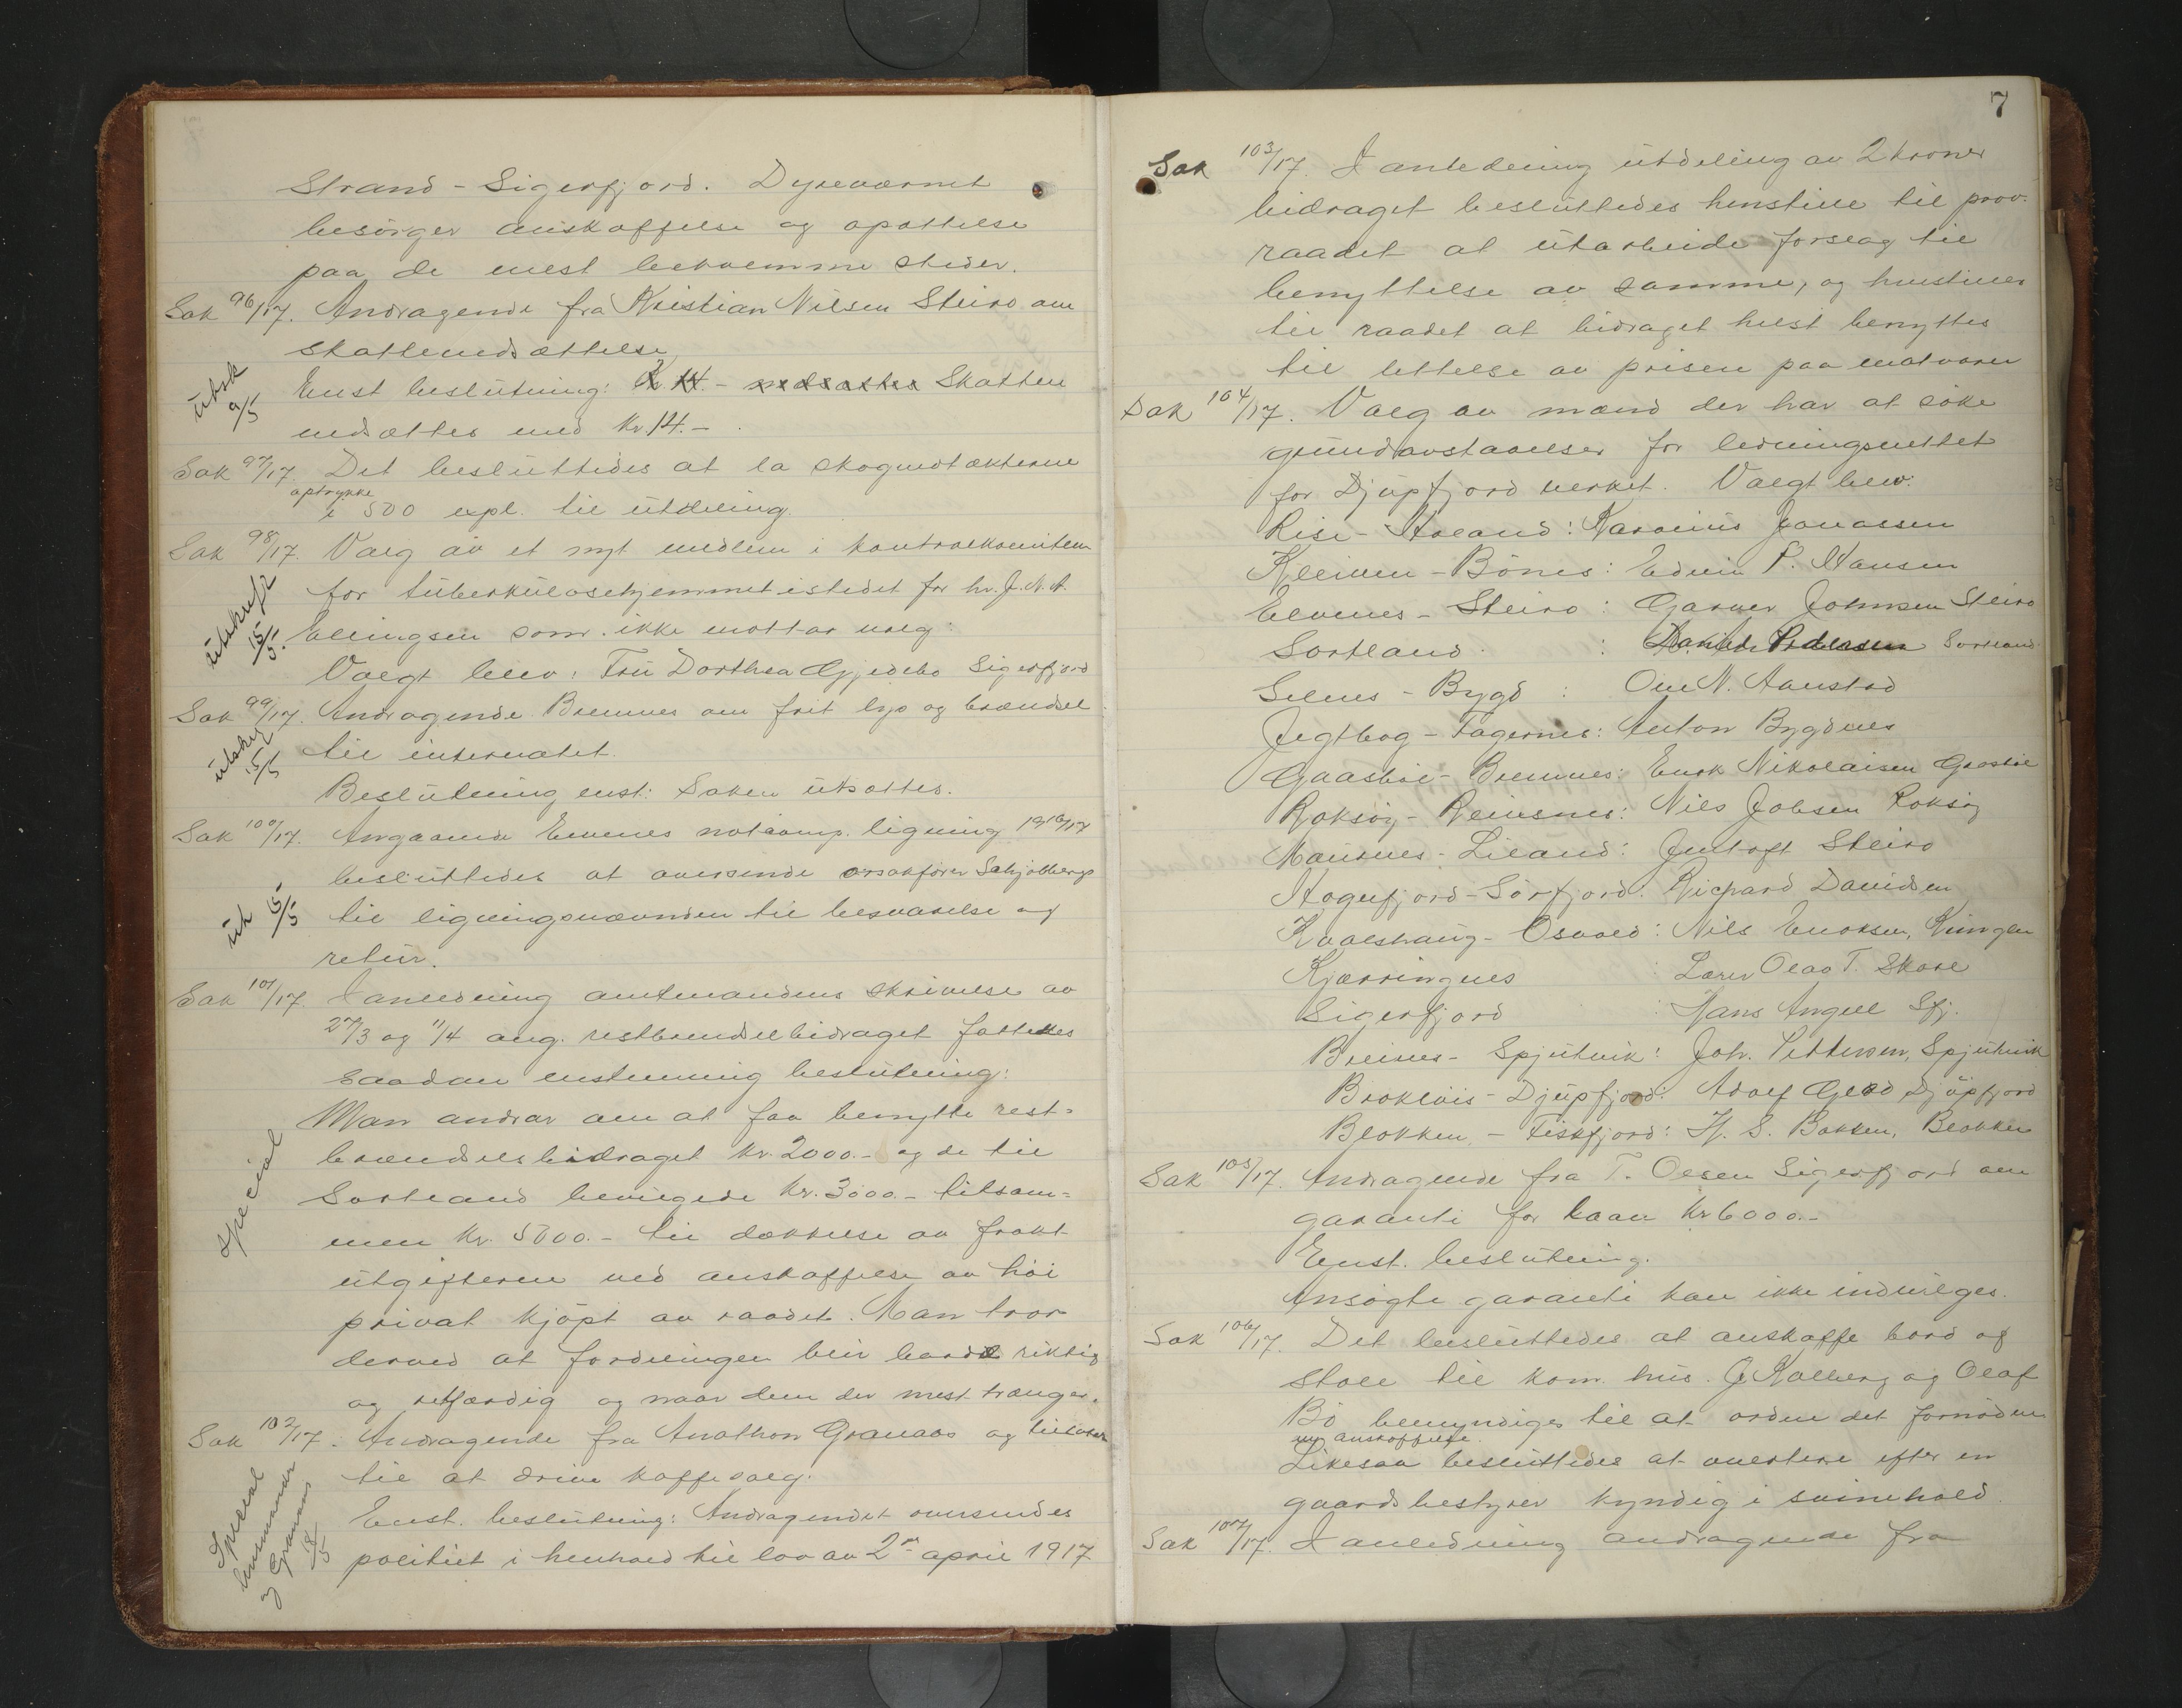 Strand - Sigerfjord. Dyreværnet
besörger anskaffelse og opsættelse
paa de mest bekvemme steder.
Sak 96/17. Andragende fra Kristian Nilsen Steiro om
skattenedsættelse
Utsk 9/5
Enst beslutning: Skatten
nedsættes med Kr. 14.-
Sak 97/17. Det besluttedes at la skogvedtækterne
optrykke
i 500 expl. til utdeling.
Sak 98/17. Valg av et nyt medlem i kontrolkomiteen
Utskrift 15/5.
for tuberkulosehjemmet istedet for hr. J. N. A.
Ellingsen som ikke mottar valg:
Valgt blev: Fru Dorthea Gjedebo Sigerfjord
Sak 99/17. Andragende Bremnes om frit lys og brændsel
utskrift 15/5
til internatet.
Beslutning enst: Saken utsættes.
Sak 100/17. Angaaende Evenes not comp. ligning 1916/17
besluttedes at oversende orsakfører Schjelbergs
ut 15/5
til ligningsnævnden til besvarelse og
retur.
Sak 101/17. I anledning amtmandens skrivelse av
27/3 og 11/4 ang. restbrendselbidraget fattedes
saadan enstemmig beslutning:
Special
Man andrar om at faa benytte rest-
brændselsbidraget kr. 2000.- og de til
Sortland bevilgede kr. 3000.- tilsam-
men Kr. 5000.- til dækkelse av frakt
utgifterne ved anskaffelse av höi
privat kjöpt av raadet. Man tror
derved at fordelingen blir baade riktig
og retfærdig og naar dem der mest trænger.
Sak 102/17. Andragende fra Anathon Granaas og
til at drive kaffesalg.
Special
lensmand
og Granaas
18/5
Enst. beslutning: Andragendet oversendes
politiet i henhold til lov av 2den april 1917
7
Sak 103/17. I anledning utdeling av 2 kroner
bidraget besluttedes henstille til prov.
raadet at utarbeide forslag til
benyttelse av samme, og henstilles
til raadet at bidraget helst benyttes
til lettelse av prisen paa matvarer
Sak 104/17. Valg av mænd der har at söke
grundavstaaelser for ledningsnettet
for Djupfjord verket. Valgt blev:
Rise - Holand: Karolius Jonassen
Kleiven - Bönes: Edvin P. Hansen
Elvenes - Steiro: Garner Johnsen Steiro
Sortland : Pedersen Sortland
Selnes - Bygd : Ole N. Aanstad
Jegtbog - Fagernes: Anton Bygdnes
Gaasböl - Bremnes: Enok Nikolaisen Gaasböl
Roksöy - Reinsnes: Nils Jobsen Roksöy
Maurnes - Liland: Jentoft Steiro
Hognfjord - Sörfjord: Richard Davidsen
Kvalshaug - Osvold: Nils Enoksen, Kringlen
Kjærringnes : Lærer Olav T. Skore
Sigerfjord : Hans Angell Sfj.
Breines - Spjutvik: Joh. Pettersen, Spjutvik
Brokløis - Djupfjord: Adolf Gletd Djupfjord
Blokken - Fiskfjord: H. S. Bakken, Blokken
Sak 105/17. Andragende fra T. Olsen Sigerfjord om
garanti for laan kr 6000.-
Enst. beslutning.
Ansögte garanti kan ikke indvilges.
Sak 106/17. Det besluttedes at anskaffe bord og
stole til kom. hus. J. Kolberg og Olaf
Bö bemyndiges til at ordne det fornödne
anskaffelse
Likesaa besluttedes at avertere efter en
gaardsbestyrer kyndig i svinehold
Sak 107/17. I anledning andragende fra